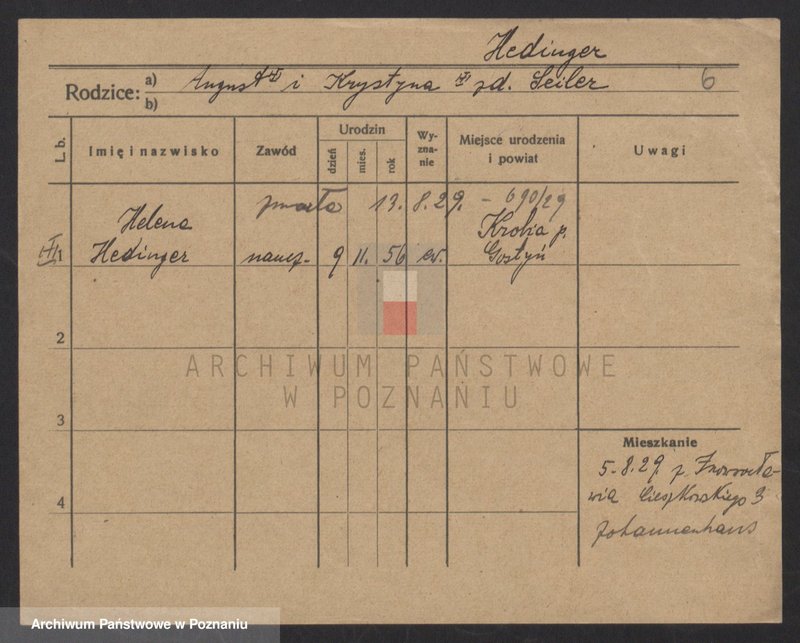 Hedinger
Rodzice: a) August i Krystyna zd. Seiler 6
b)
L. b. Imię i nazwisko Zawód Urodzin dzień mies. rok Wy-zna-nie Miejsce urodzenia i powiat Uwagi
zmarła 13. 8. 29. – 690/29
Helena Krobia p.
1 Hedinger naucz. 9 11. 56 ew. Gostyń
2
ARCHIWUM PAŃSTWOWE
W POZNANIU
3
Mieszkanie
5.8.29 z Inowrocła-
wia Cieszkowskiego 3
4
Johannenhaus
Archiwum Państwowe w Poznaniu